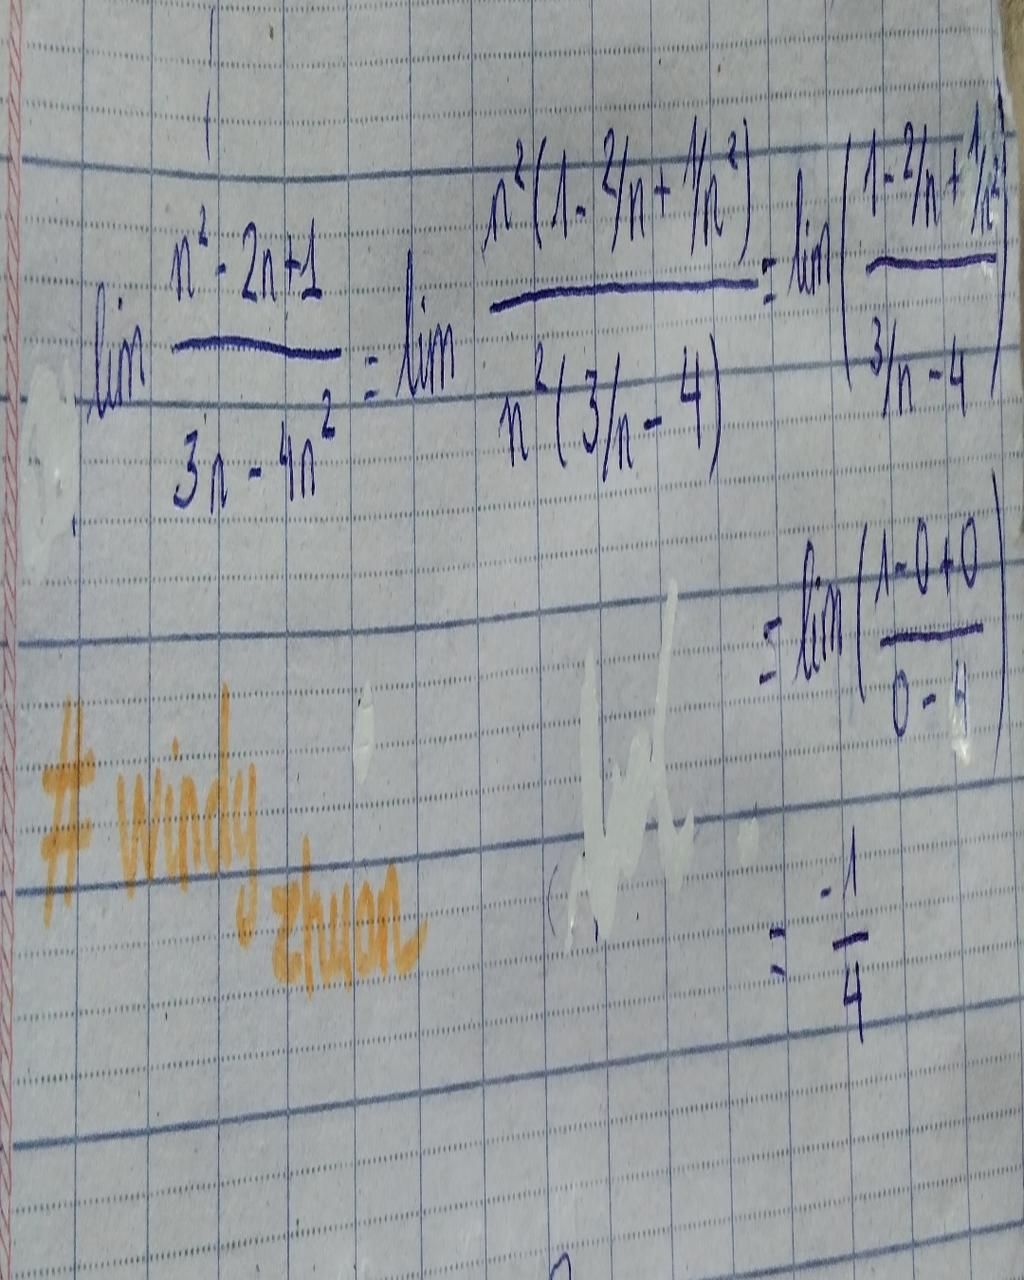 lim (n² - 2n+1)/(3n - 4n²) = lim (n²(1 - 2/n + 1/n²))/(n²(3/n - 4)) = lim ((1 - 2/n + 1/n²)/(3/n - 4))
= lim ((1 - 0 + 0)/(0 - 4))
= -1/4
# windy
zhyon